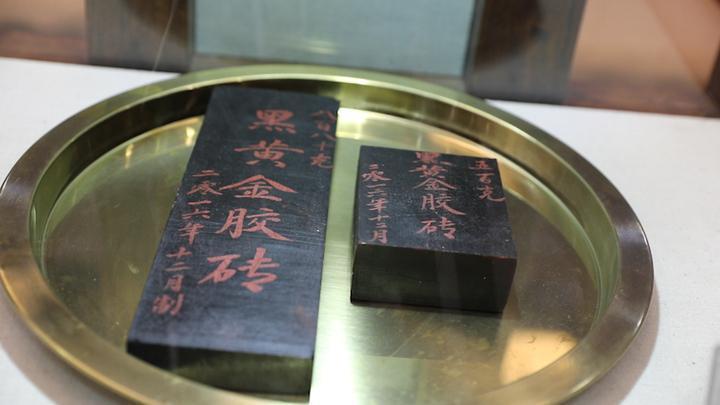 八百八十克
黑黄金胶砖
二零一六年十二月制
五百克
黑黄金胶砖
二零一六年十二月